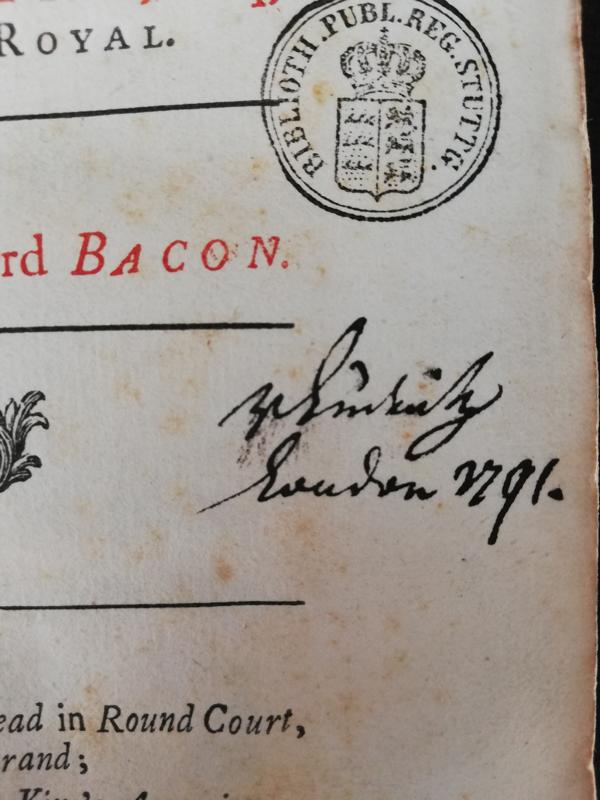 ROYAL.
BIBLIOTH. PUBL. REG. STUTTG.
rd BACON.
London 1791.
ead in Round Court,
rand;